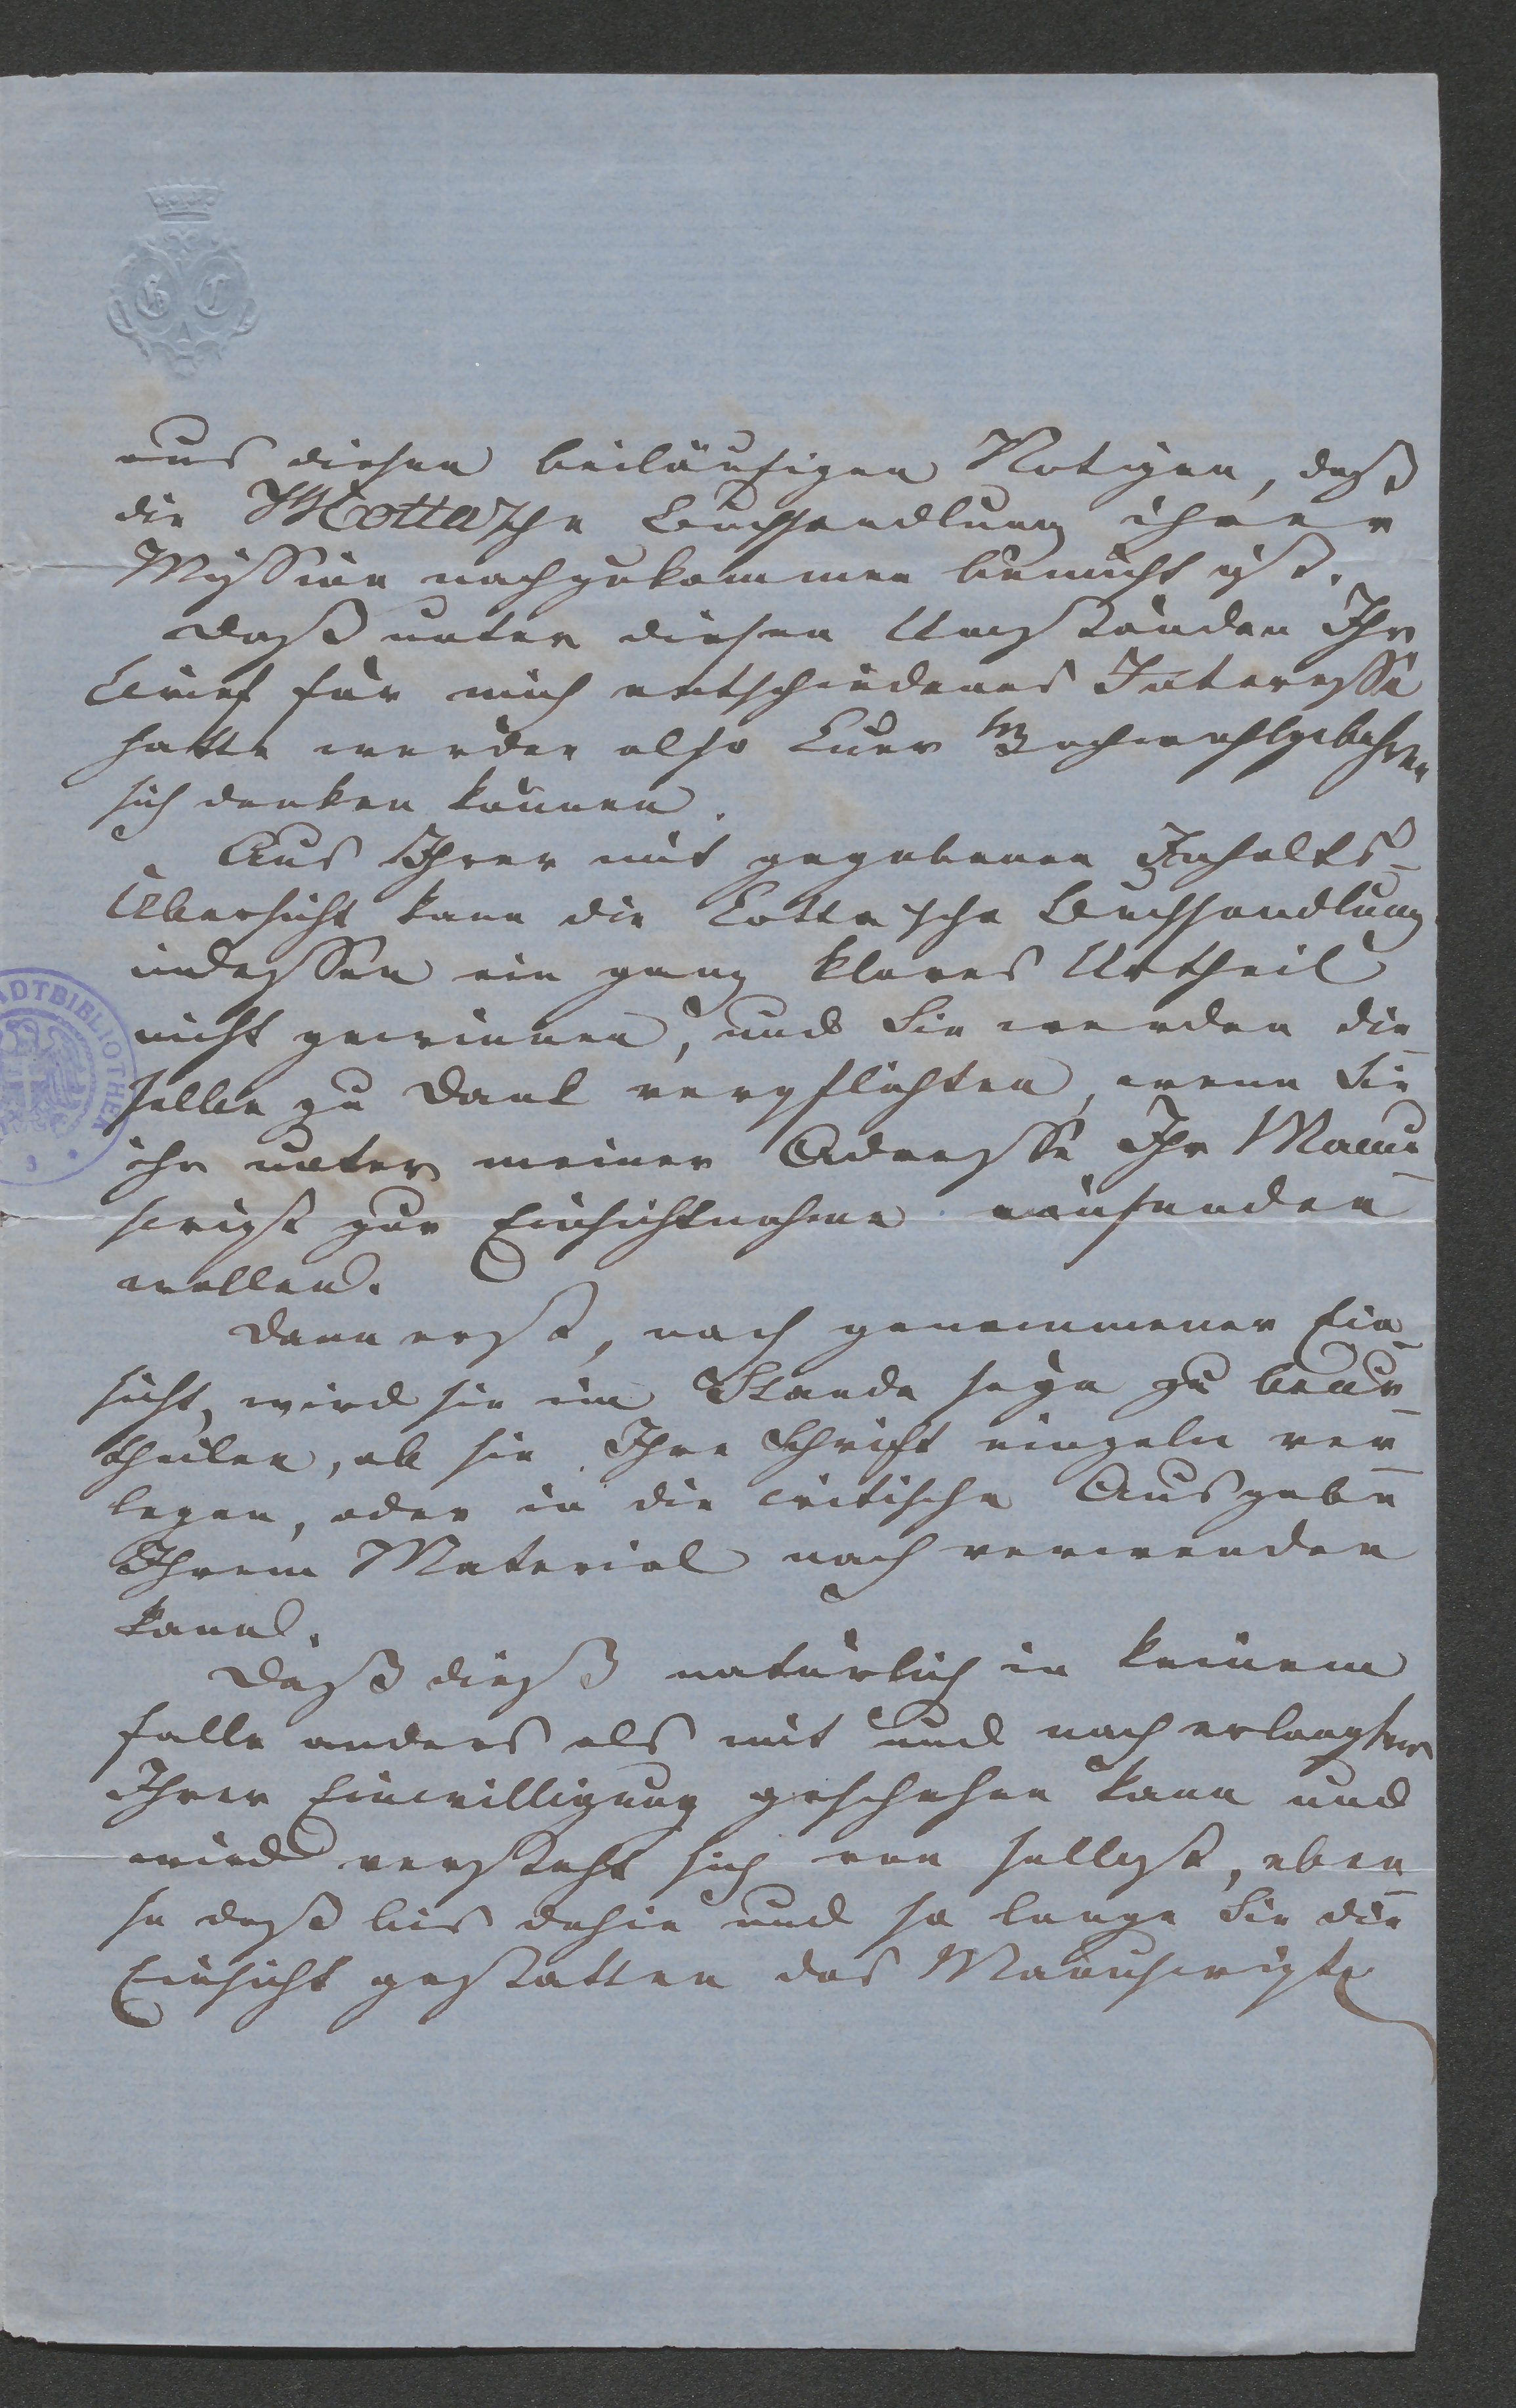 G C
aus diesen beiläufigen Notizen, daß
die JGCotta'sche Buchhandlung ihrer
Mission nachzukommen bemüht ist.
Daß unter diesen Umständen Ihr
Brief für mich entschiedenes Interesse
hatte werden also Euer Hochwohlgebohren
sich denken können.
Aus Ihrer mit gegebenen Inhalts-
Übersicht kann die Cotta'sche Buchhandlung
indessen ein ganz klares Urtheil
nicht gewinnen, und Sie werden die-
selbe zu Dank verpflichten, wenn Sie
ihr unter meiner Adresse Ihr Manu-
script zur Einsichtnahme einsenden
wollen.
Dann erst, nach genommener Ein-
sicht, wird sie im Stande seyn zu beur-
theilen, ob sie Ihre Schrift einzeln ver-
legen, oder in die critische Ausgabe
Ihrem Material nach verwenden
kann.
Daß dieß natürlich in keinem
Falle anders als mit und nach erlangter
Ihrer Einwilligung geschehen kann und
wird versteht sich von selbst, eben-
so daß bis dahin und so lange Sie die
Einsicht gestatten das Manuscript
ADTBIBLIOTHEK